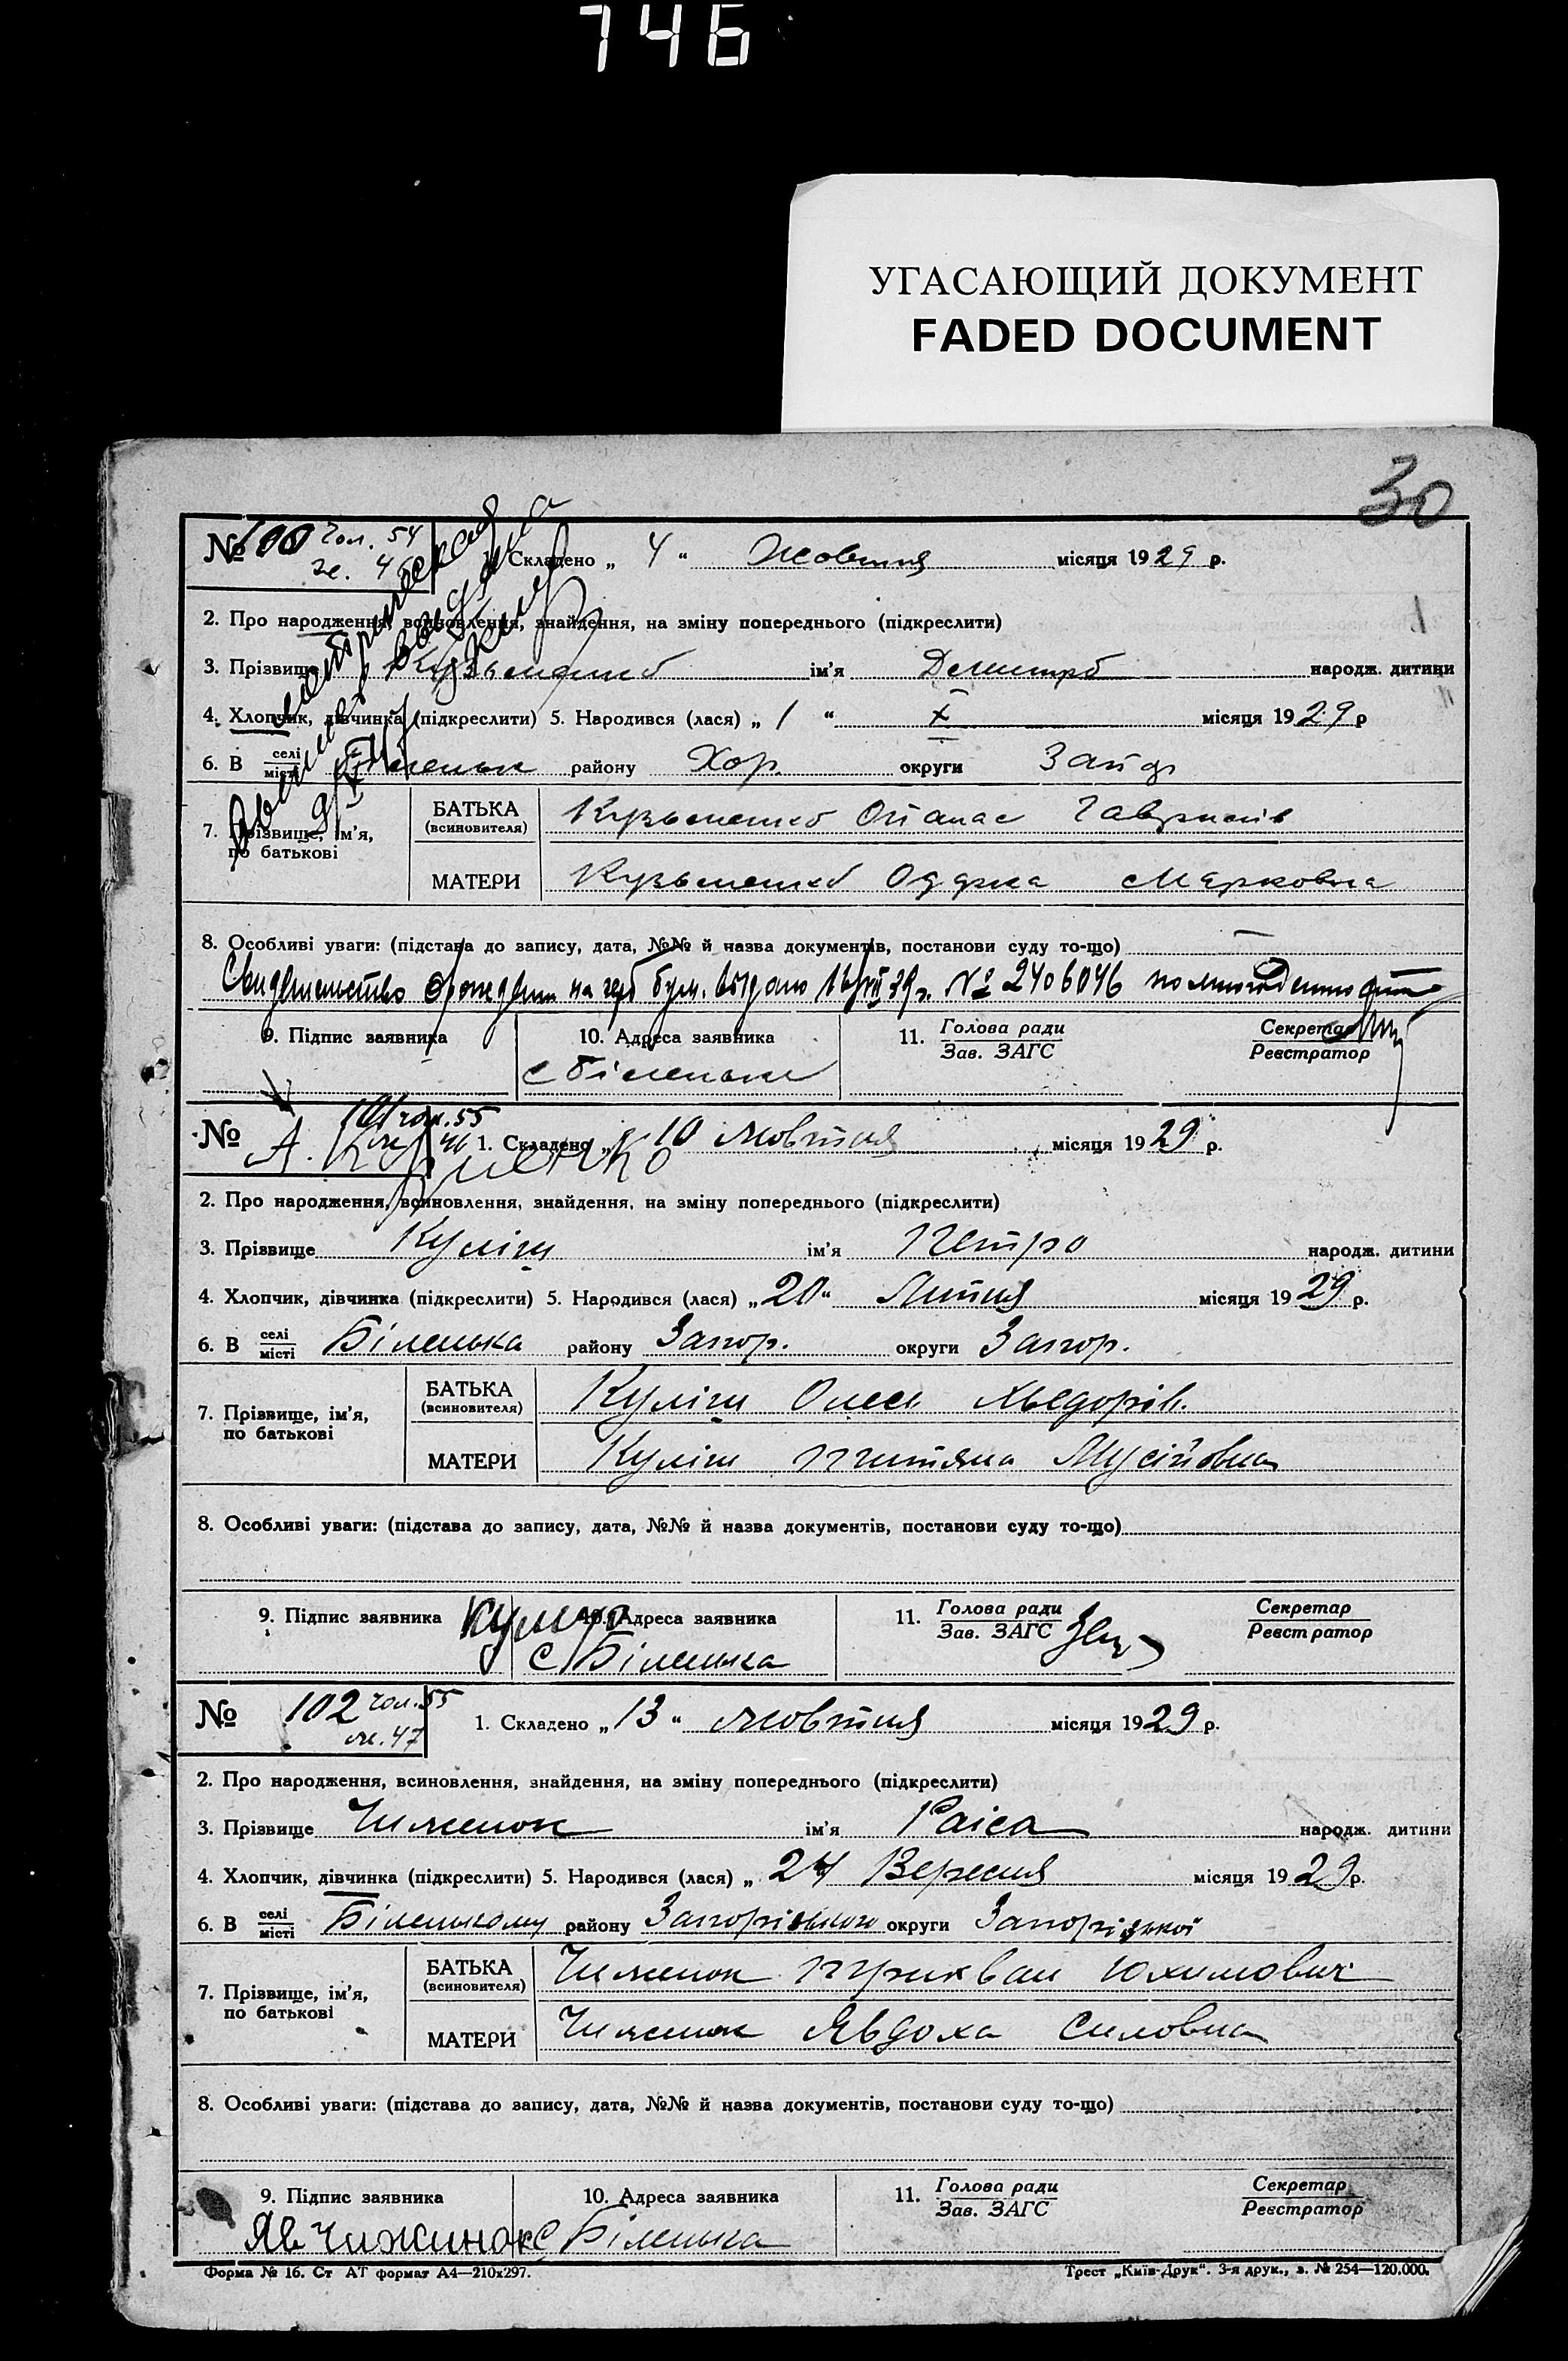 746
УГАСАЮЩИЙ ДОКУМЕНТ
FADED DOCUMENT
30
№ 100 чол. 54
ж. 46
1. Складено „ 4 “ Жовтня місяця 1929 р.
2. Про народження, всиновлення, знайдення, на зміну попереднього (підкреслити)
3. Прізвище Кузьменко ім'я Дмитро народж. дитини
4. Хлопчик, дівчинка (підкреслити) 5. Народився (лася) „ 1 “ X місяця 1929 р
6. В селі/місті району Хор. округи
7. Прізвище, ім'я, по батькові
БАТЬКА (всиновителя) Кузьменко Опанас
МАТЕРИ Кузьменко Одарка Марковна
8. Особливі уваги: (підстава до запису, дата, №№ й назва документів, постанови суду то-що)
Свидетельство о рождении на герб бум. выдано № 2406046
9. Підпис заявника
10. Адреса заявника
с Біленьке
11. Голова ради/Зав. ЗАГС
Секретар/Реєстратор
№ 101 чол. 55
ж. 46
1. Складено „ 10 жовтня місяця 1929 р.
2. Про народження, всиновлення, знайдення, на зміну попереднього (підкреслити)
3. Прізвище Куліш ім'я Петро народж. дитини
4. Хлопчик, дівчинка (підкреслити) 5. Народився (лася) „ 20 “ Липня місяця 1929 р.
6. В селі/місті Біленька району Запор. округи Запор.
7. Прізвище, ім'я, по батькові
БАТЬКА (всиновителя) Куліш Олесь Хведорів.
МАТЕРИ Куліш Мусійовна
8. Особливі уваги: (підстава до запису, дата, №№ й назва документів, постанови суду то-що)
9. Підпис заявника
10. Адреса заявника
с Біленька
11. Голова ради/Зав. ЗАГС
Секретар/Реєстратор
№ 102 чол. 55
ж. 47
1. Складено „ 13 “ жовтня місяця 1929 р.
2. Про народження, всиновлення, знайдення, на зміну попереднього (підкреслити)
3. Прізвище Чиженок ім'я Раіса народж. дитини
4. Хлопчик, дівчинка (підкреслити) 5. Народився (лася) „ 24 Вересня місяця 1929 р.
6. В селі/місті Біленькому району Запорізького округи Запорізької
7. Прізвище, ім'я, по батькові
БАТЬКА (всиновителя) Чиженок Юхимович
МАТЕРИ Чиженок Явдоха Силовна
8. Особливі уваги: (підстава до запису, дата, №№ й назва документів, постанови суду то-що)
9. Підпис заявника
Яв Чижинок
10. Адреса заявника
с Біленька
11. Голова ради/Зав. ЗАГС
Секретар/Реєстратор
Форма № 16. Ст АТ формат А4—210х297.
Трест „Київ-Друк“. 3-я друк., з. № 254—120.000.